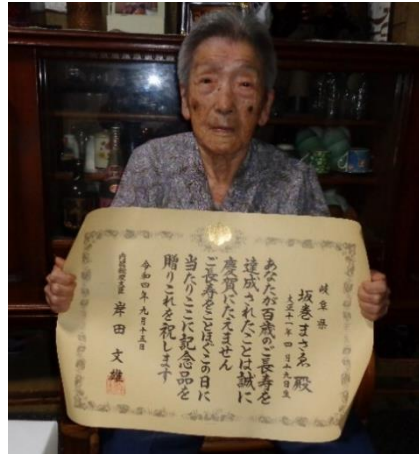 岐阜県
坂巻まさゑ殿
大正十一年四月十九日生
あなたが百歳のご長寿を
達成されたことは誠に
慶賀にたえません
ご長寿をことほぐこの日に
当たりここに記念品を
贈りこれを祝します
令和四年九月十五日
内閣総理大臣 岸田文雄